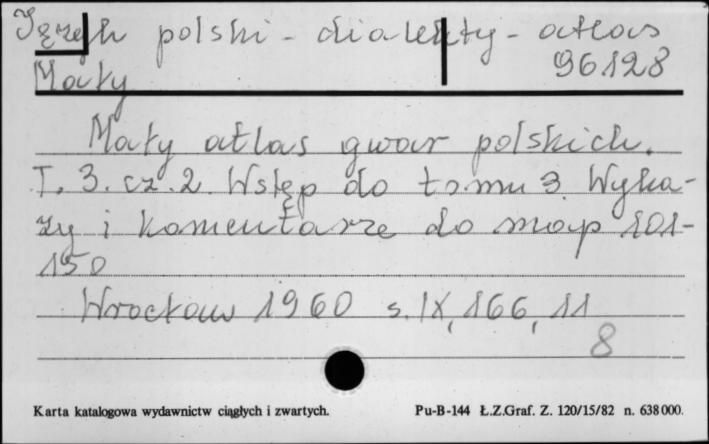 Język polski - dialekty - atlas
96128
Mały
Mały atlas gwar polskich.
T. 3. cz. 2. Wstęp do tomu 3. Wyka-
zy i komentarze do map 101-
150
Wrocław 1960 s. IX, 166, 11
8
Karta katalogowa wydawnictw ciągłych i zwartych. Pu-B-144 Ł.Z.Graf. Z. 120/15/82 n. 638000.